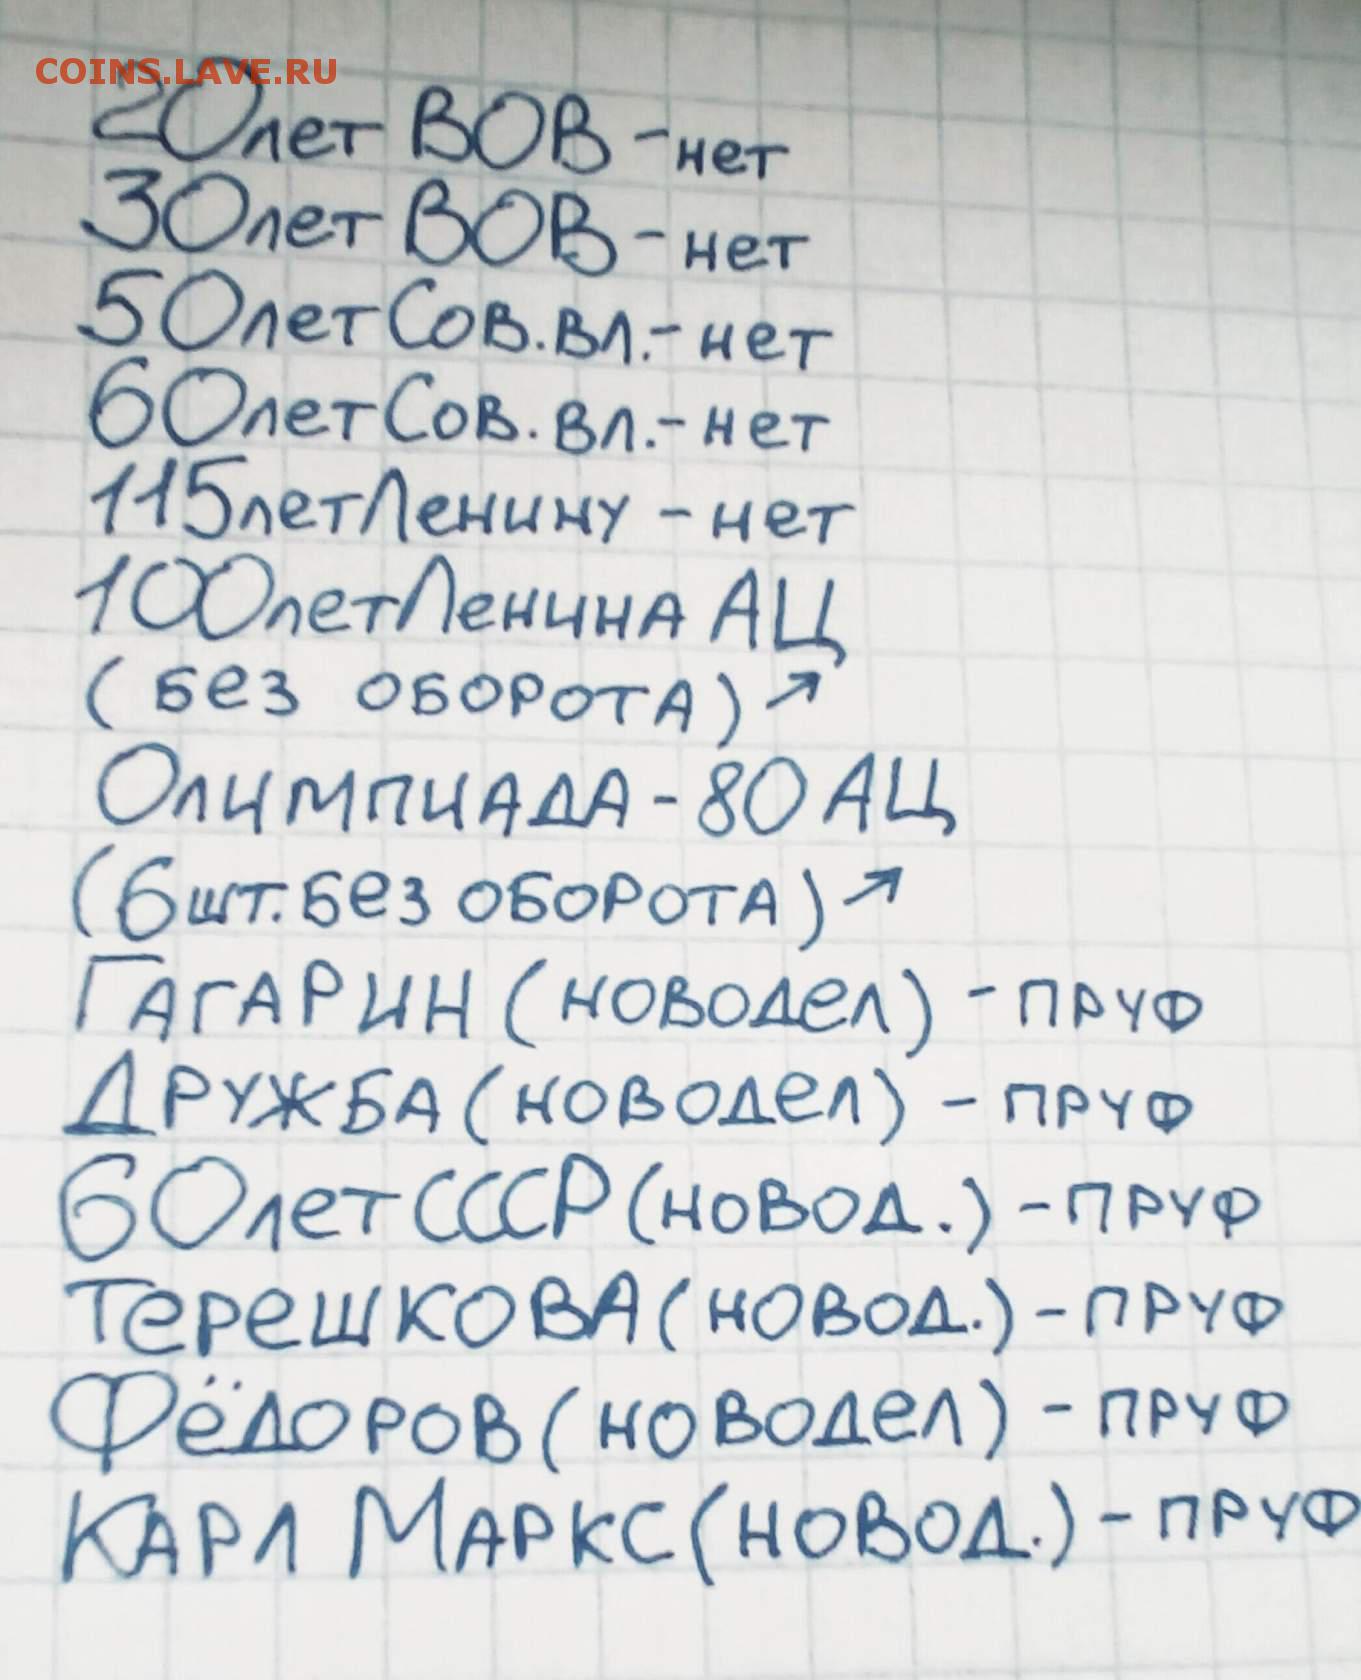 COINS.LAVE.RU
20лет ВОВ - нет
30лет ВОВ - нет
50лет Сов.вл. - нет
60лет Сов.вл. - нет
115лет Ленину - нет
100лет Ленина АЦ
(без оборота) ↗
Олимпиада - 80 АЦ
(6шт. без оборота) ↗
Гагарин (новодел) - пруф
Дружба (новодел) - пруф
60лет СССР (новод.) - пруф
Терешкова (новод.) - пруф
Фёдоров (новодел) - пруф
Карл Маркс (новод.) - пруф